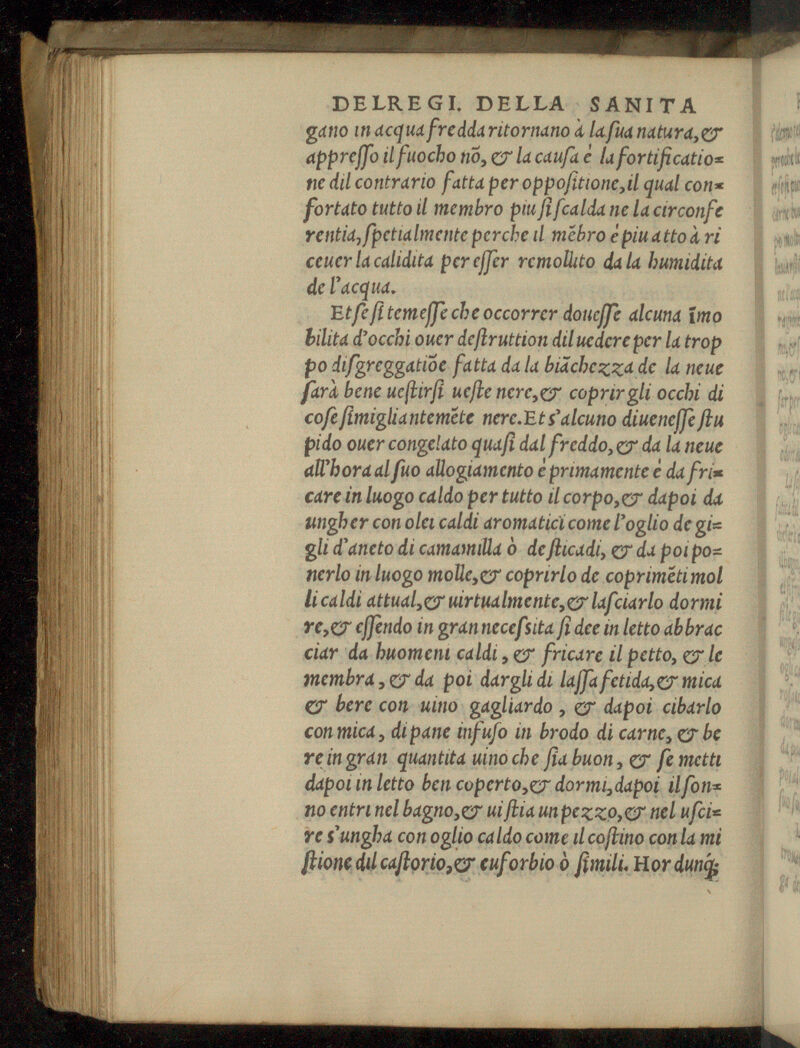 DELREGI. DELLA SANITA
gano in acqua fredda ritornano à la ſua natura, &
appreſſo il fuocho nō, & la cauſa é la fortificatio=
ne dil contrario fatta per oppoſitione, il qual con=
fortato tutto il membro piu ſi ſcalda ne la circonfe
rentia, ſpetialmente perche il mēbro é piu atto à ri
ceuer la calidita per eſſer remollito da la humidita
de l'acqua.
Et ſe ſi temeſſe che occorrer doueſſe alcuna īmo
bilita d'occhi ouer deſtruttion dil uedere per la trop
po diſgreggatiōe fatta da la biāchezza de la neue
ſarà bene ueſtirſi ueſte nere, & coprir gli occhi di
coſe ſimigliantemēte nere. Et s'alcuno diueneſſe ſtu
pido ouer congelato quaſi dal freddo, & da la neue
all'hora al ſuo allogiamento é primamente é da fri=
care in luogo caldo per tutto il corpo, & dapoi da
ungher con olei caldi aromatici come l'oglio de gi=
gli d'aneto di camamilla ò de ſticadi, & da poi po=
nerlo in luogo molle, & coprirlo de coprimēti mol
li caldi attual, & uirtualmente, & laſciarlo dormi
re, & eſſendo in gran neceſsita ſi dee in letto abbrac
ciar da huomeni caldi, & fricare il petto, & le
membra, & da poi dargli di laſſa fetida, & mica
& bere con uino gagliardo, & dapoi cibarlo
con mica, di pane infuſo in brodo di carne, & be
re in gran quantita uino che ſia buon, & ſe metti
dapoi in letto ben coperto, & dormi, dapoi il ſon=
no entri nel bagno, & ui ſtia un pezzo, & nel uſci=
re s'ungha con oglio caldo come il coſtino con la mi
ſtione dil caſtorio, & euforbio ò ſimili. Hor dunq;